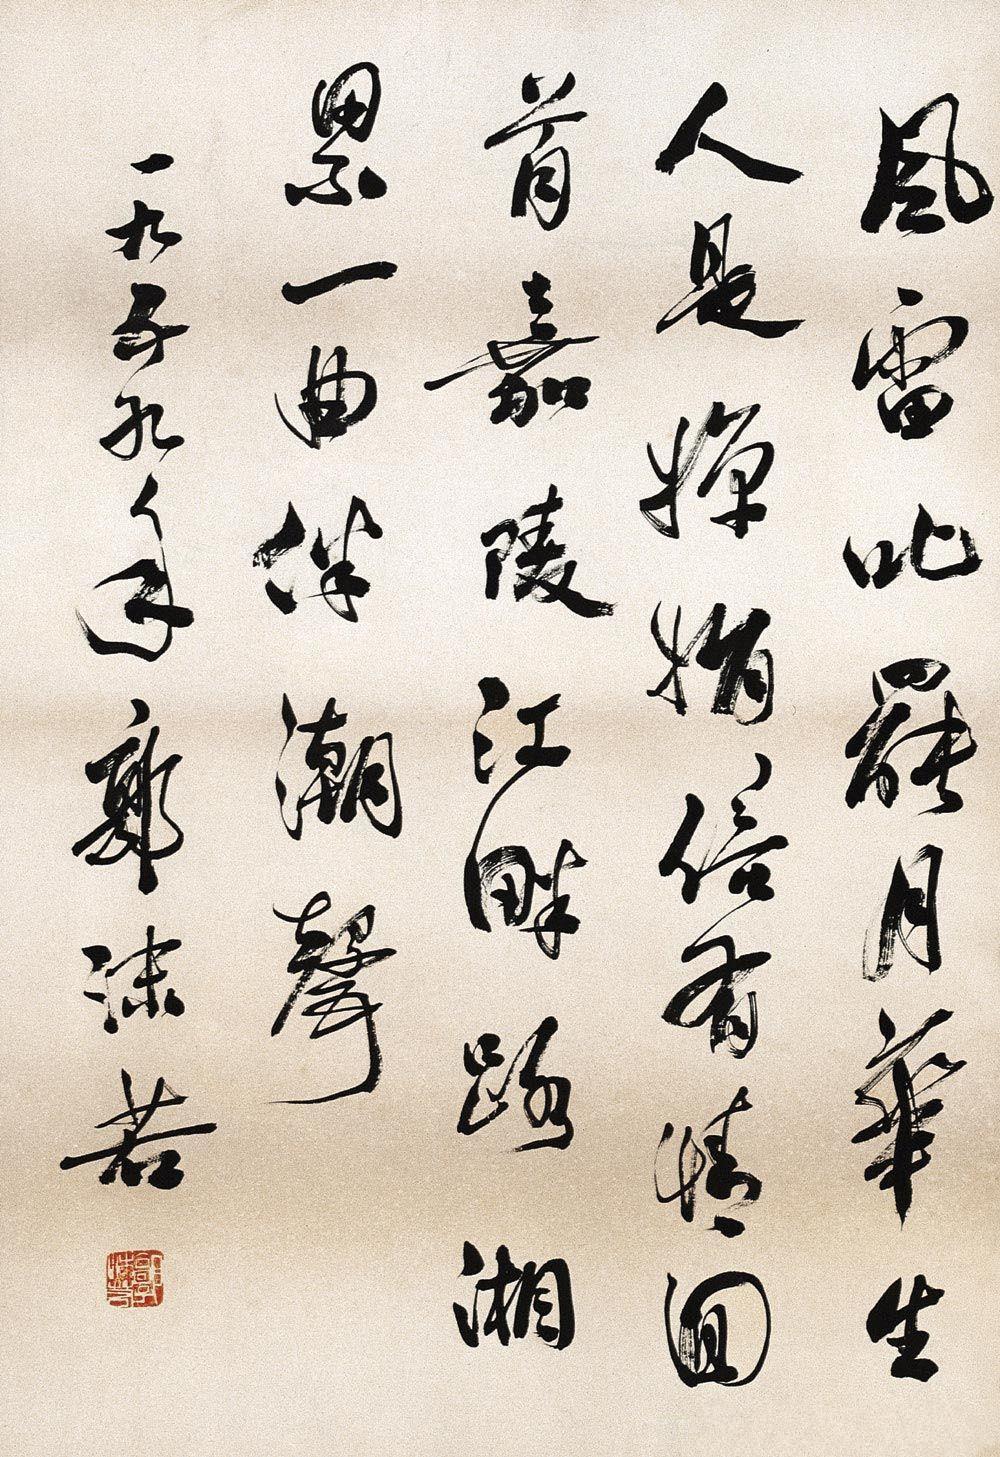 風雷叱罷月華生
人是嬋娟倍有情回
首嘉陵江畔路湘
累一曲伴潮聲
一九五九年郭沫若
郭沫若